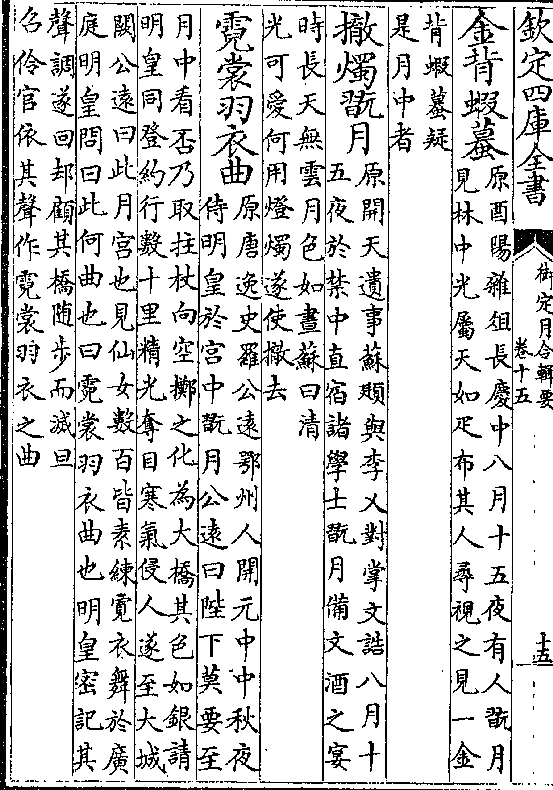 欽定四庫全書
御定月令輯要
卷十五
十五
金背蝦蟇
原酉陽雜俎長慶中八月十五夜有人翫月
見林中光屬天如疋布其人尋視之見一金
背蝦蟇疑
是月中者
撤燭翫月
原開天遺事蘇頲與李乂對掌文誥八月十
五夜於禁中直宿諸學士翫月備文酒之宴
時長天無雲月色如晝蘇曰清
光可愛何用燈燭遂使撤去
霓裳羽衣曲
原唐逸史羅公遠鄂州人開元中中秋夜
侍明皇於宮中翫月公遠曰陛下莫要至
月中看否乃取拄杖向空擲之化為大橋其色如銀請
明皇同登約行數十里精光奪目寒氣侵人遂至大城
闕公遠曰此月宮也見仙女數百皆素練寛衣舞於廣
庭明皇問曰此何曲也曰霓裳羽衣曲也明皇密記其
聲調遂回却顧其橋隨步而滅旦
召伶官依其聲作霓裳羽衣之曲